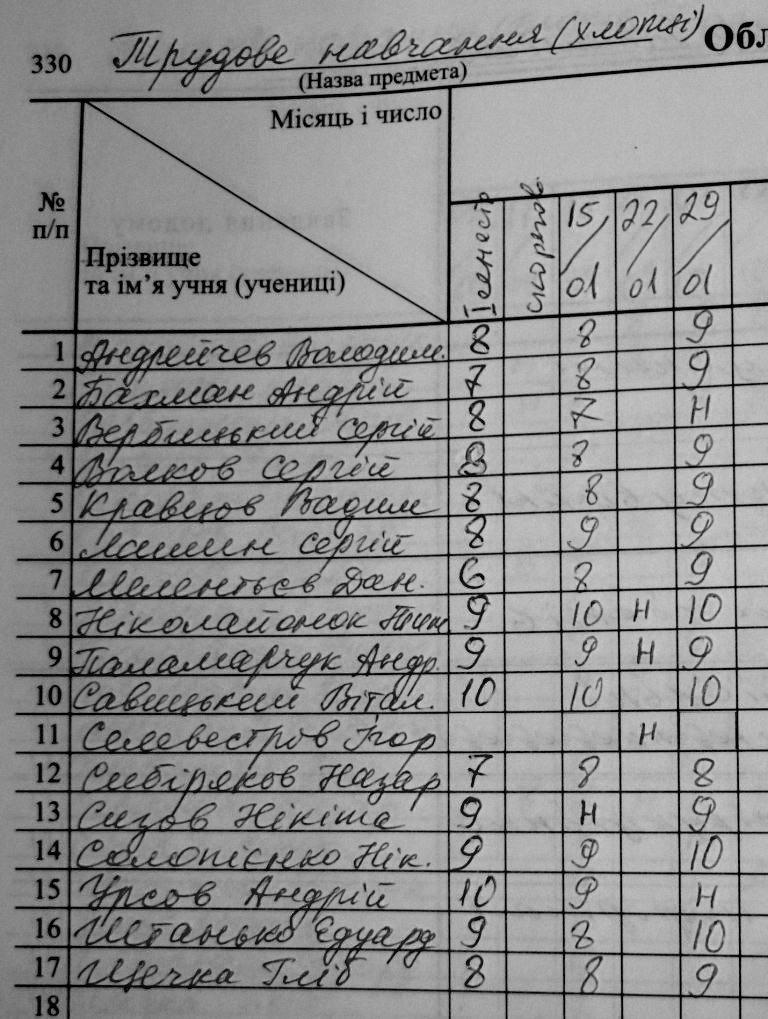 330 Трудове навчання (хлопці) Обл
(Назва предмета)
Місяць і число
№ п/п
Прізвище
та ім’я учня (учениці)
І семестр скориг. 15/01 22/01 29/01
1 Андрейчев Володим. 8 8 9
2 Бахман Андрій 7 8 9
3 Вербицький Сергій 8 7 н
4 Волков Сергій 8 8 9
5 Кравцов Вадим 8 8 9
6 Лашин Сергій 8 9 9
7 Мелентьєв Дан. 6 8 9
8 Ніколайонок 9 10 н 10
9 Паламарчук Андр. 9 9 н 9
10 Савицький Вітал. 10 10 10
11 Селевестров Ігор н
12 Сибіряков Назар 7 8 8
13 Сизов Нікіта 9 н 9
14 Солопієнко Нік. 9 9 10
15 Урсов Андрій 10 9 н
16 Штанько Едуард 9 8 10
17 Щечка Гліб 8 8 9
18